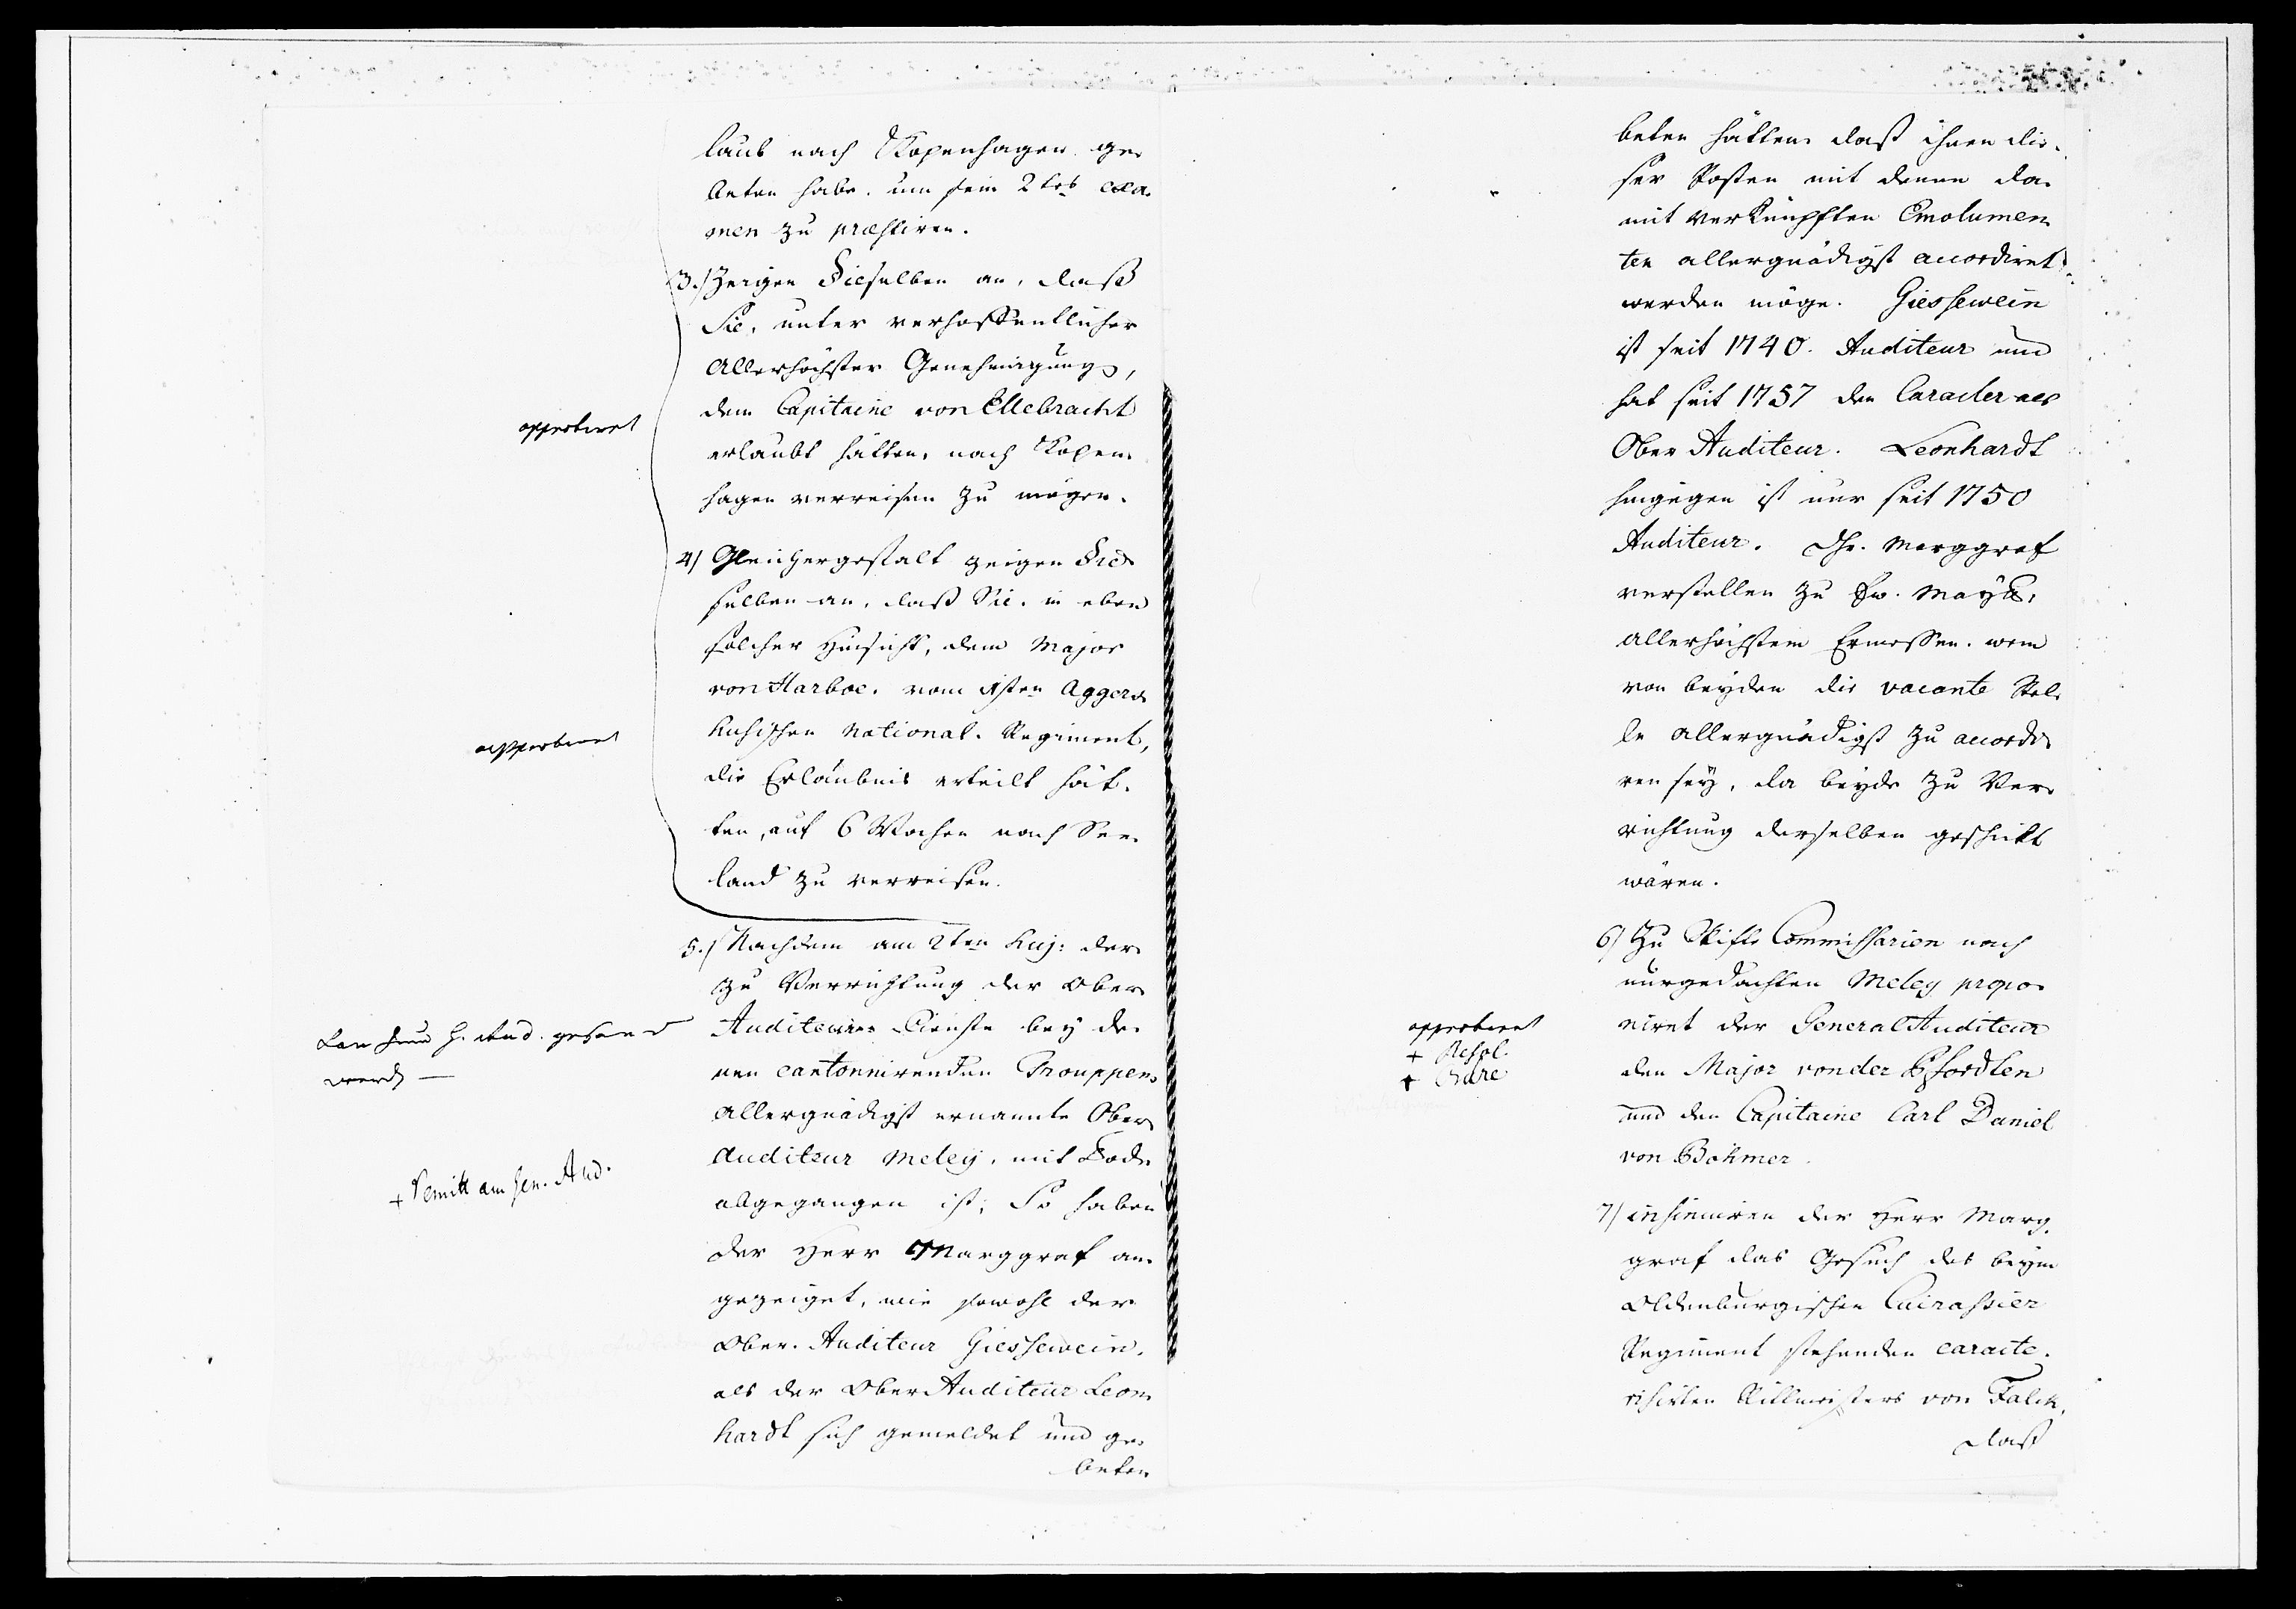 laub nach Kopenhagen ge-
beten habe, um sein 2tes exa-
men zu præstiren.
3.) Zeigen Dieselben an, daß
Sie, unter verhoffentlicher
Allerhöchster Genehmigung,
dem Capitaine von Ellebracht
erlaubt hätten, nach Kopen-
hagen verreisen zu mögen.
approbiret
4) Gleichergestalt zeigen Die-
selben an, daß Sie, in eben
solcher Hinsicht, dem Major
von Harboe, vom 1sten Agger-
husischen National-Regiment,
die Erlaubnis erteilt hät-
ten, auf 6 Wochen nach See-
land zu verreisen.
approbiret
5.) Nachdem am 2ten huj: der
zu Verrichtung der Ober-
Auditeurs-Dienste bey de-
nen cantonnirenden Trouppen
allergnädigst ernannte Ober-
Auditeur Meley, mit Tode
abgegangen ist; So haben
der Herr Marggraf an-
gezeiget, wie sowohl der
Ober-Auditeur Giessewein,
als der Ober Auditeur Leon-
hardt sich gemeldet und ge-
beten
G. Aud. gesand
werd —
+ Remitt am Gen. Aud.
beten hätten, daß ihnen die-
ser Posten mit denen da-
mit verknüpften Emolumen-
ten allergnädigst accordiret
werden möge. Giessewein
ist seit 1740. Auditeur und
hat seit 1757 den Caracter als
Ober Auditeur. Leonhardt
hingegen ist nur seit 1750
Auditeur. Marggraf
verstellen zu Ew. Mayt.
allerhöchstem Ermessen, wem
von beyden die vacante Stel-
le allergnädigst zu accordi-
ren sey, da beyde zu Ver-
richtung derselben geschickt
wären.
6) Zu Skifte Commissarien nach
nurgedachten Meley propo-
niret der General Auditeur
den Major von der Pfordten
und den Capitaine Carl Daniel
von Böhmer.
approbiret
+ Resol.
+ Ordre
7) insinuiren der Herr Marg-
graf das Gesuch des beym
Oldenburgischen Cuirassier
Regiment stehenden caracte-
risirten Rittmeisters von Falck,
daß